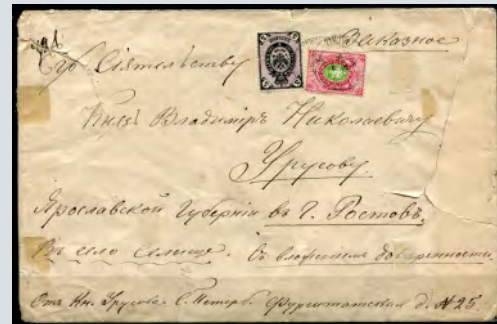 Заказное
Его Сіятельству
Князь Владиміръ Николаевичу
Урусову.
Ярославской Губерніи въ Г. Ростовъ,
Въ село Селище. Съ вложеніемъ доверенности.
Отъ Кн. Урусова С. Петерб. Фурштатская д. № 25.